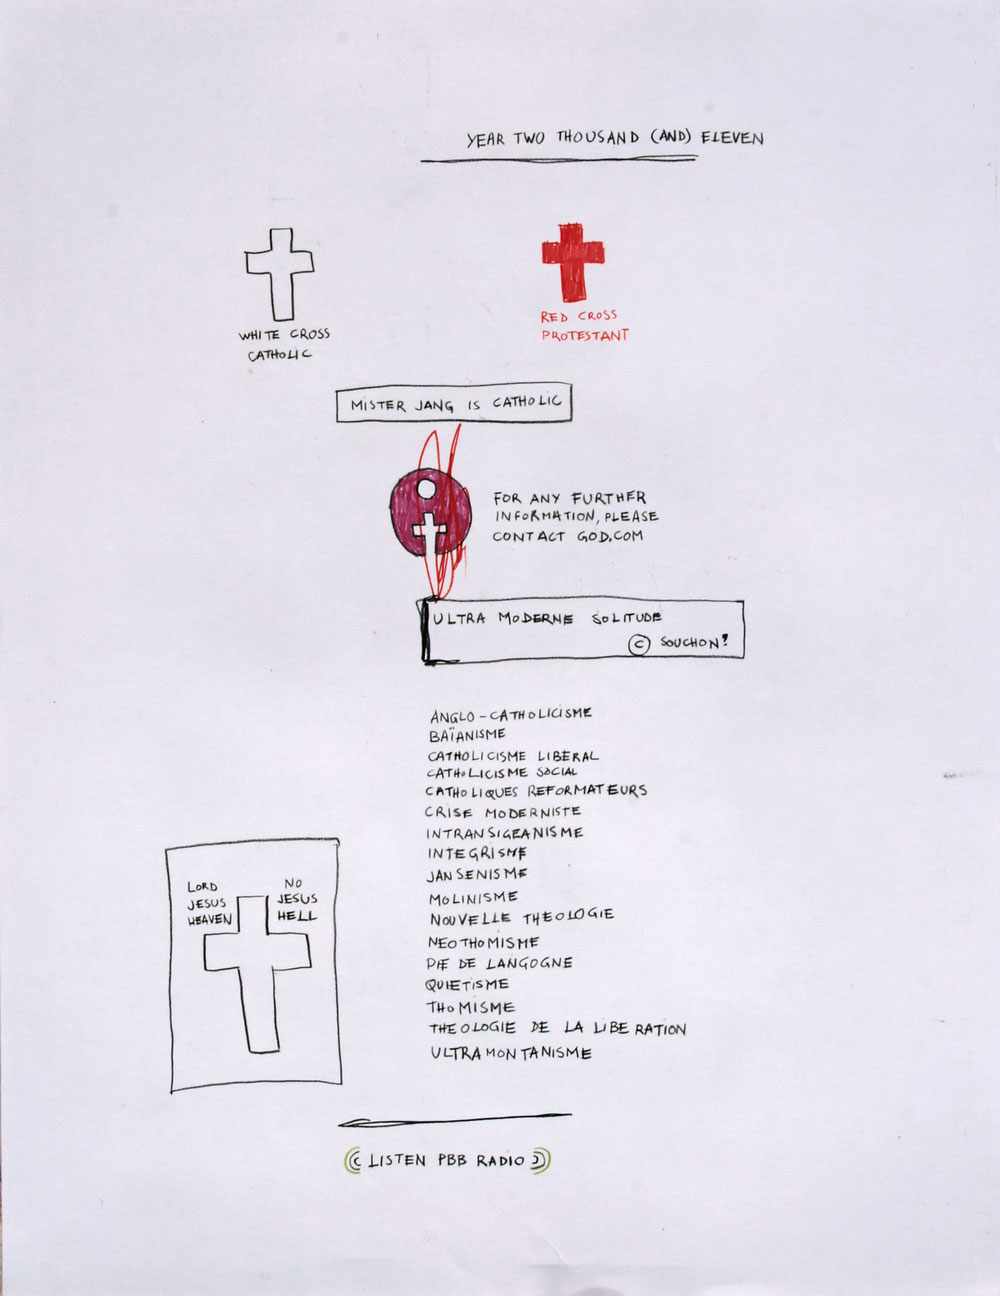 YEAR TWO THOUSAND (AND) ELEVEN
WHITE CROSS
CATHOLIC
RED CROSS
PROTESTANT
MISTER JANG IS CATHOLIC
FOR ANY FURTHER
INFORMATION, PLEASE
CONTACT GOD.COM
ULTRA MODERNE SOLITUDE
© SOUCHON?
ANGLO-CATHOLICISME
BAÏANISME
CATHOLICISME LIBERAL
CATHOLICISME SOCIAL
CATHOLIQUES REFORMATEURS
CRISE MODERNISTE
INTRANSIGEANISME
INTEGRISME
JANSENISME
MOLINISME
NOUVELLE THEOLOGIE
NEOTHOMISME
PIE DE LANGOGNE
QUIETISME
THOMISME
THEOLOGIE DE LA LIBERATION
ULTRAMONTANISME
LORD
JESUS
HEAVEN
NO
JESUS
HELL
LISTEN PBB RADIO